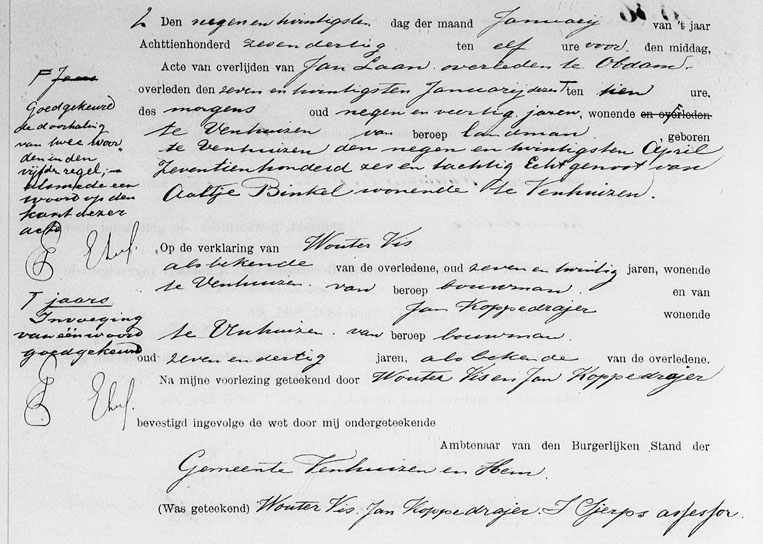 2 Den negen en twintigsten dag der maand Januarij van 't jaar
Achttienhonderd zesendertig ten elf ure voor den middag,
Acte van overlijden van Jan Laan overleden te Obdam
overleden den zeven en twintigsten Januarij dezes T ten tien ure.
des morgens oud negen en veertig jaren, wonende en overleden
te Venhuizen van beroep landman, geboren
te Venhuizen den negen en twintigsten April
Zeventienhonderd zes en tachtig Echtgenoot van
Aaltje Binkel wonende te Venhuizen.
F Jaars
Goedgekeurd
de doorhaling
van twee woor„
den in den
vijfde regel;
alsmede een
woord op den
kant dezer
acte
Op de verklaring van Wouter Vis
als bekende van de overledene, oud zeven en twintig jaren, wonende
te Venhuizen van beroep bouwman. en van
Jan Koppedrajer wonende
te Venhuizen van beroep bouwman.
oud zeven en dertig jaren, als bekende van de overledene.
T jaars
Invoeging
van één woord
goedgekeurd
Na mijne voorlezing geteekend door Wouter Vis en Jan Koppedrajer
bevestigd ingevolge de wet door mij ondergeteekende
Ambtenaar van den Burgerlijken Stand der
Gemeente Venhuizen en Hem.
(Was geteekend) Wouter Vis. Jan Koppedrajer. S Sjerps assessor.